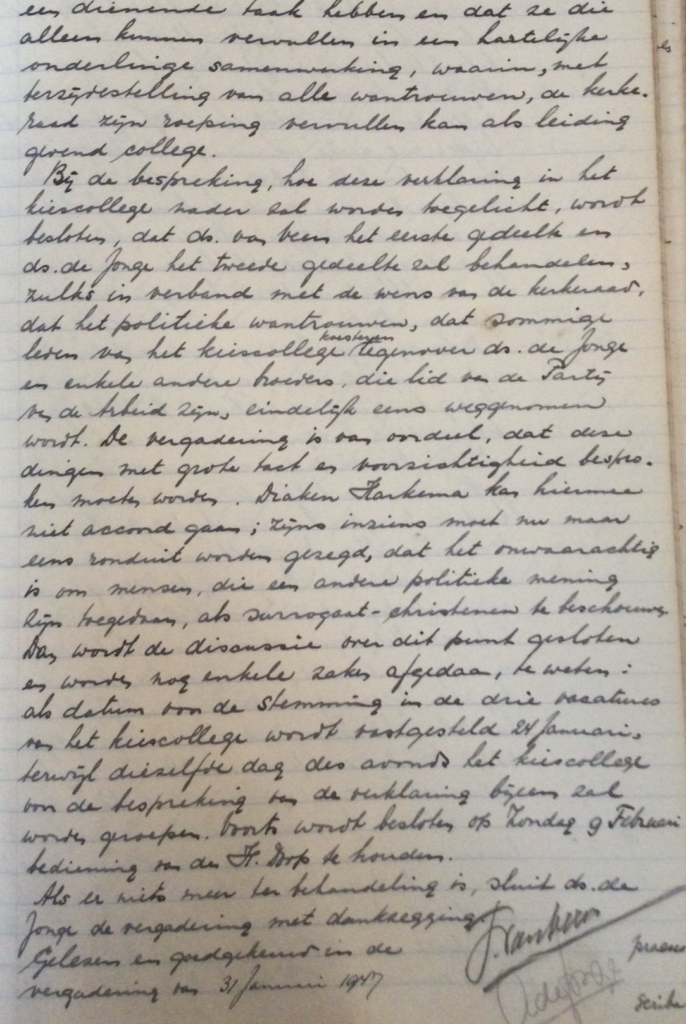 een dienende taak hebben en dat ze die
alleen kunnen vervullen in een hartelijke
onderlinge samenwerking, waarin, met
terzijdestelling van alle wantrouwen, de kerke-
raad zijn roeping vervullen kan als leiding
gevend college.
Bij de bespreking, hoe deze verklaring in het
kiescollege nader zal worden toegelicht, wordt
besloten, dat ds. van Veen het eerste gedeelte en
ds. de Jonge het tweede gedeelte zal behandelen,
zulks in verband met de wens van de kerkeraad,
dat het politieke wantrouwen, dat sommige
koesteren
leden van het kiescollege tegenover ds. de Jonge
en enkele andere broeders, die lid van de Partij
van de Arbeid zijn, eindelijk eens weggenomen
wordt. De vergadering is van oordeel, dat deze
dingen met grote tact en voorzichtigheid bespro-
ken moeten worden. Diaken Harkema kan hiermee
niet accoord gaan; zijns inziens moet nu maar
eens ronduit worden gezegd, dat het onwaarachtig
is om mensen, die een andere politieke mening
zijn toegedaan, als surrogaat-christenen te beschouwen.
Dan wordt de discussie over dit punt gesloten
en worden nog enkele zaken afgedaan, te weten:
als datum voor de stemming in de drie vacatures
van het kiescollege wordt vastgesteld 24 Januari,
terwijl diezelfde dag des avonds het kiescollege
voor de bespreking van de verklaring bijeen zal
worden geroepen. Voorts wordt besloten op Zondag 9 Februari
bediening van de H. Doop te houden.
Als er niets meer ter behandeling is, sluit ds. de
Jonge de vergadering met dankzegging.
Gelezen en goedgekeurd in de
vergadering van 31 Januari 1947
praeses
scriba